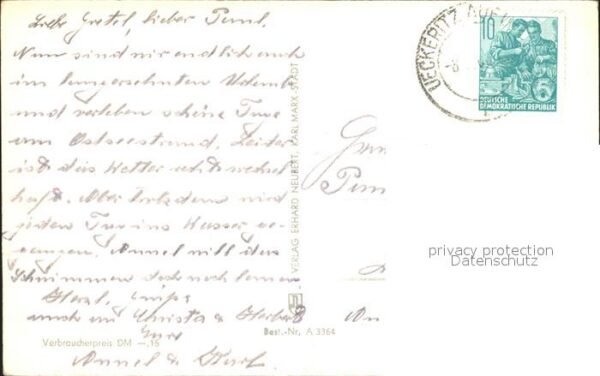 Liebe Gretel, lieber Paul.
Nun sind wir endlich auch
im langersehnten Urlaub
und verleben schöne Tage
am Ostseestrand. Leider
ist das Wetter recht wechsel
haft. Aber trotzdem wird
jeden Tag ins Wasser ge-
gangen. Annel will das
Schwimmen doch noch lernen
Herzl. Grüße
auch an Christa & Herbert
Eure
Annel & Karl
VERLAG ERHARD NEUBERT, KARL-MARX-STADT
Best.-Nr. A 3364
Verbraucherpreis DM —,15
UECKERITZ
10
DEUTSCHE
DEMOKRATISCHE REPUBLIK
privacy protection
Datenschutz